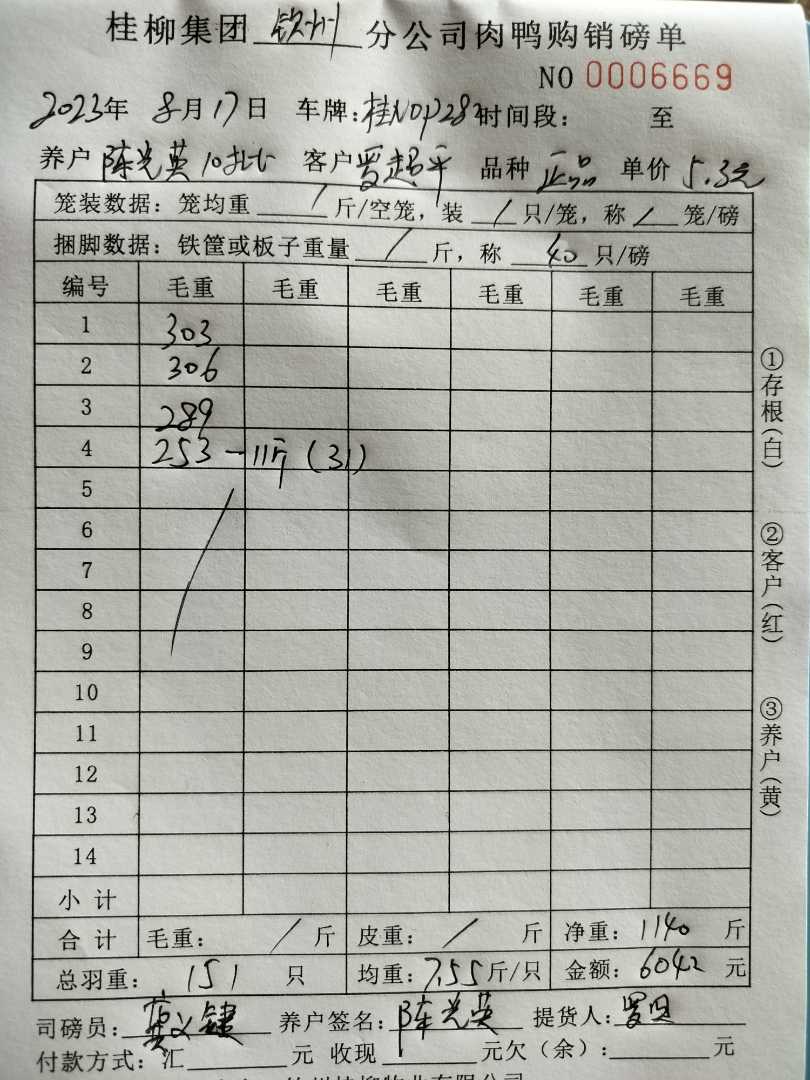 桂柳集团 钦州 分公司肉鸭购销磅单
NO 0006669
2023年 8月17日 车牌: 时间段: 至
养户 陈光英 10批 客户 超平 品种 正品 单价 5.3元
笼装数据: 笼均重 / 斤/空笼, 装 / 只/笼, 称 / 笼/磅
捆脚数据: 铁筐或板子重量 / 斤, 称 40 只/磅
编号 毛重 毛重 毛重 毛重 毛重 毛重
1 303
2 306
3 289
4 253 - 11斤 (31)
5
6
7
8
9
10
11
12
13
14
小计
合计 毛重: / 斤 皮重: / 斤 净重: 1140 斤
总羽重: 151 只 均重: 7.55 斤/只 金额: 6042 元
司磅员: 养户签名: 陈光英 提货人:
付款方式: 汇 元 收现 元欠(余): 元
①存根(白)
②客户(红)
③养户(黄)